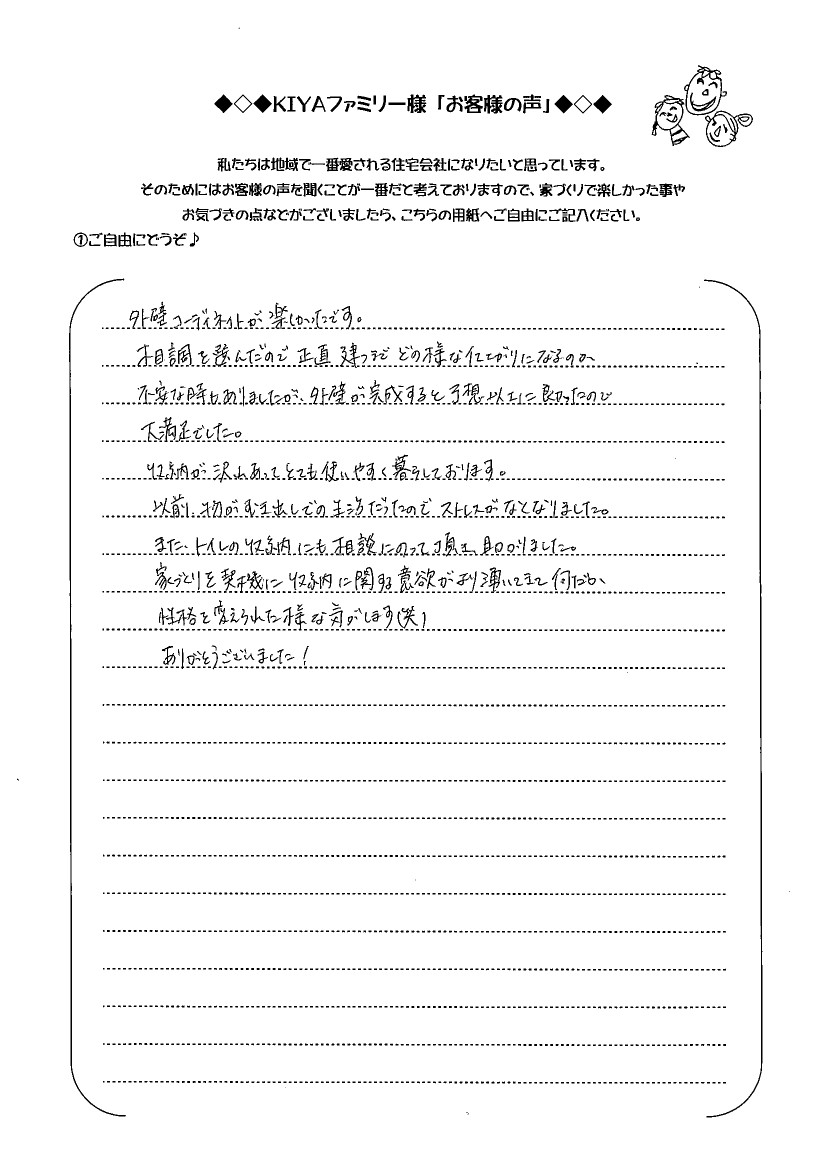 ◆◇◆KIYAファミリー様「お客様の声」◆◇◆
私たちは地域で一番愛される住宅会社になりたいと思っています。
そのためにはお客様の声を聞くことが一番だと考えておりますので、家づくりで楽しかった事や
お気づきの点などがございましたら、こちらの用紙へご自由にご記入ください。
①ご自由にどうぞ♪
外壁コーディネイトが楽しかったです。
木目調を選んだので正直建つまでどの様な仕上がりになるのか
不安な時もありましたが、外壁が完成すると予想以上に良かったので
大満足でした。
収納が沢山あってとても使いやすく暮らしております。
以前、物がむき出しでの生活だったのでストレスがなくなりました。
また、トイレの収納にも相談にのって頂き、助かりました。
家づくりを契機に収納に関する意欲がより湧いてきて何だか、
性格を変えられた様な気がします(笑)
ありがとうございました!